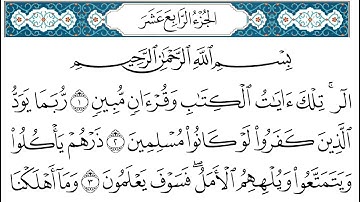 الجزء الرابع عشر
بِسْمِ اللَّهِ الرَّحْمَٰنِ الرَّحِيمِ
الٓرۚ تِلْكَ ءَايَٰتُ ٱلْكِتَٰبِ وَقُرْءَانٍ مُّبِينٍ ١ رُّبَمَا يَوَدُّ
ٱلَّذِينَ كَفَرُوا۟ لَوْ كَانُوا۟ مُسْلِمِينَ ٢ ذَرْهُمْ يَأْكُلُوا۟
وَيَتَمَتَّعُوا۟ وَيُلْهِهِمُ ٱلْأَمَلُۖ فَسَوْفَ يَعْلَمُونَ ٣ وَمَآ أَهْلَكْنَا